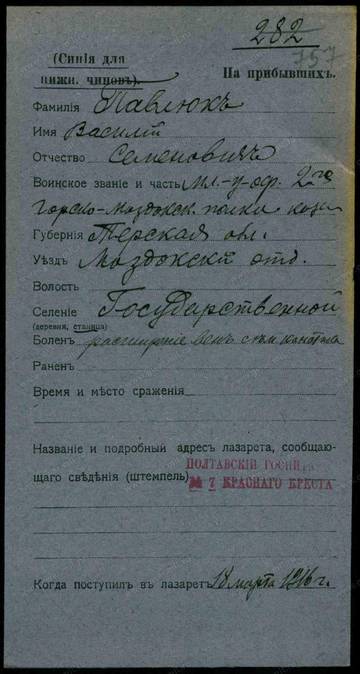 282
757
(Синія для
нижн. чиновъ).
На прибывшихъ.
Фамилія Павлюкъ
Имя Василій
Отчество Семеновичъ
Воинское званіе и часть мл.-у-оф. 2го
Горско-Моздокск. полка каз.
Губернія Терская обл.
Уѣздъ Моздокскій отд.
Волость
Селеніе Государственной
(деревня, станица)
Болен расширеніе венъ сѣм. канатика
Раненъ
Время и мѣсто сраженія
Названіе и подробный адресъ лазарета, сообщаю-
щаго свѣдѣнія (штемпель) ПОЛТАВСКІЙ ГОСПИТ
№ 7 КРАСНАГО КРЕСТА
Когда поступилъ въ лазаретъ 18 марта 1916 г.